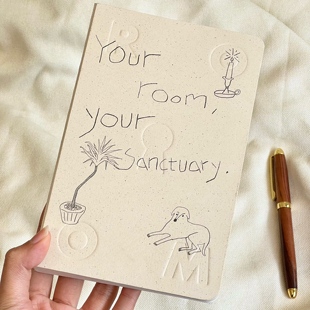 Your
room,
your
Sanctuary.